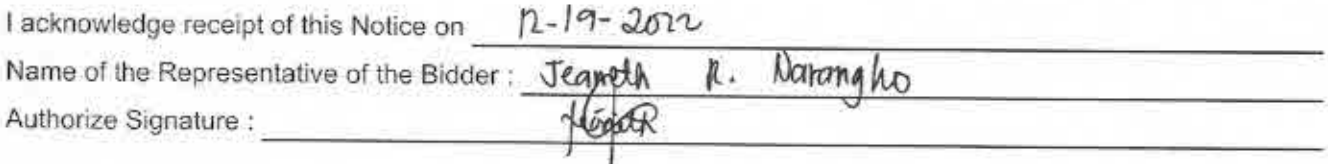 I acknowledge receipt of this Notice on 12-19-2022
Name of the Representative of the Bidder : Jeaneth R. Narangho
Authorize Signature :